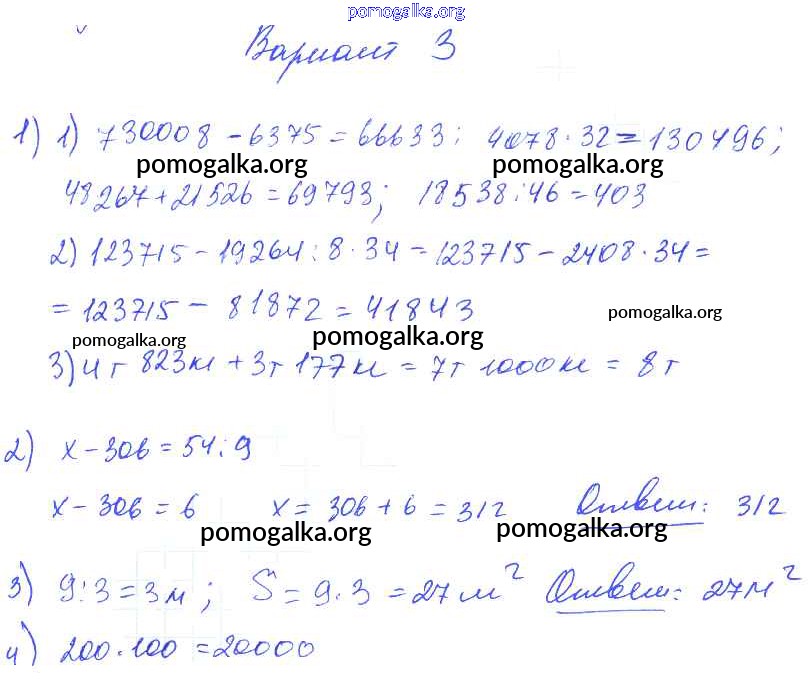 pomogalka.org
Вариант 3
1) 1) 730008 - 6375 = 66633; 4078 · 32 = 130496;
pomogalka.org pomogalka.org
48267 + 21526 = 69793; 18538 : 46 = 403
2) 123715 - 19264 : 8 · 34 = 123715 - 2408 · 34 =
= 123715 - 81872 = 41843
pomogalka.org
pomogalka.org pomogalka.org
3) 4т 823кг + 3т 177кг = 7т 1000кг = 8т
2) x - 306 = 54 : 9
x - 306 = 6 x = 306 + 6 = 312 Ответ: 312
pomogalka.org pomogalka.org
3) 9 : 3 = 3м; S = 9 · 3 = 27м² Ответ: 27м²
4) 200 · 100 = 20000